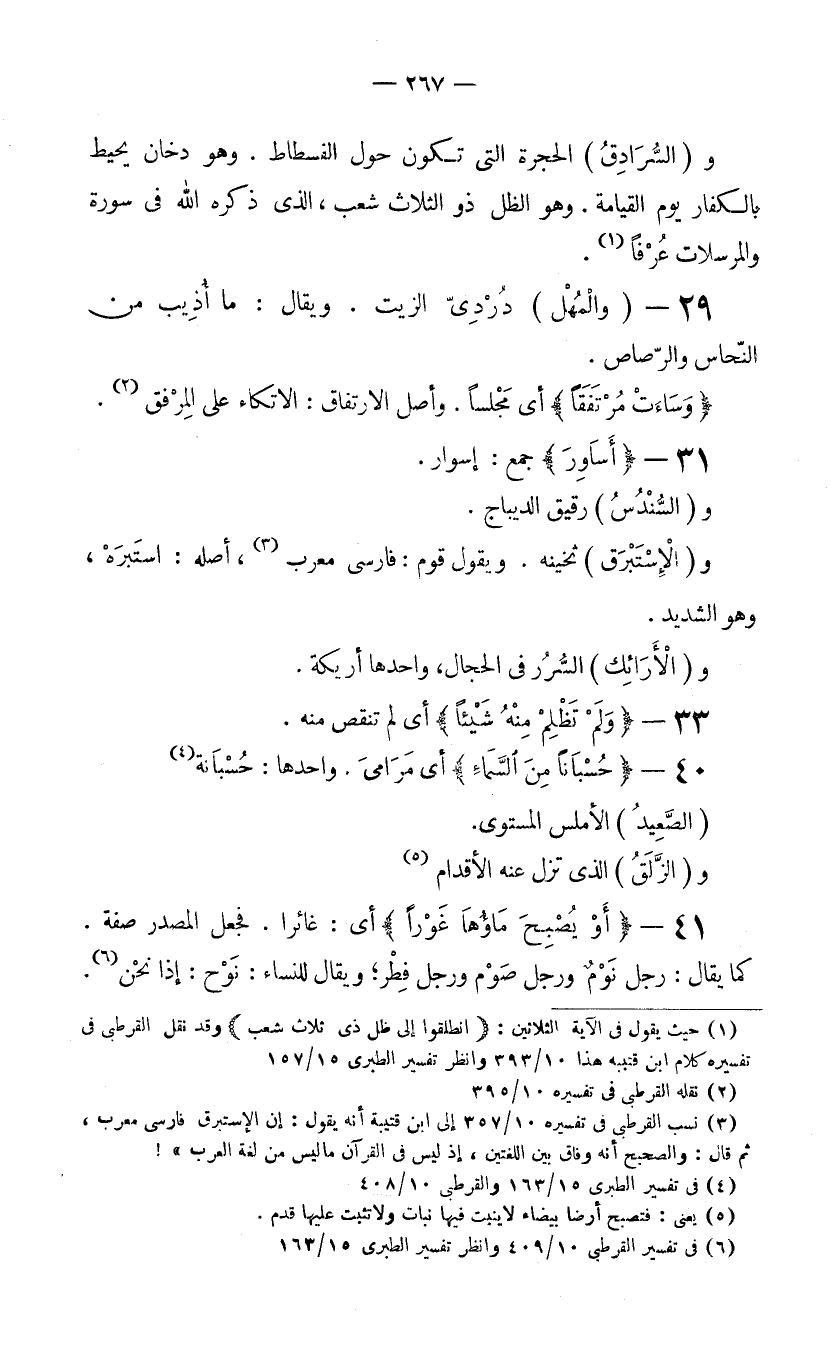 — ٢٦٧ —
و ( السُّرَادِقُ ) الحجرة التى تـكون حول الفسطاط . وهو دخان يحيط
بالـكفار يوم القيامة . وهو الظل ذو الثلاث شعب ، الذى ذكره الله فى سورة
والمرسلات عُرْفاً (١) .
٢٩ — ( والْمُهْل ) دُرْدِىّ الزيت . ويقال : ما أُذِيب من
النّحاس والرّصاص .
﴿ وَسَاءَتْ مُرْتَفَقَاً ﴾ أى مَجْلساً . وأصل الارتفاق : الاتكاء على المِرْفق (٢) .
٣١ — ﴿ أَسَاوِرَ ﴾ جمع : إسوار .
و ( السُّنْدُسُ ) رقيق الديباج .
و ( الْإِسْتَبْرَق ) ثخينه . ويقول قوم : فارسى معرب (٣) ، أصله : استَبرَهْ ،
وهو الشديد .
و ( الْأَرَائِك ) السُّرُر فى الحجال، واحدها أريكة .
٣٣ — ﴿ وَلَمْ تَظْلِمْ مِنْهُ شَيْئاً ﴾ أى لم تنقص منه .
٤٠ — ﴿ حُسْبَاناً مِنَ ٱلسَّمَاءِ ﴾ أى مَرَامِىَ . واحدها : حُسْبَانة (٤)
( الصَّعِيدُ ) الأملس المستوى.
و ( الزَّلَقُ ) الذى تزل عنه الأقدام (٥)
٤١ — ﴿ أَوْ يُصْبِحَ مَاؤُهَا غَوْراً ﴾ أى : غائرا . فجعل المصدر صفة .
كما يقال : رجل نَوْمٌ ورجل صَوْم ورجل فِطْر؛ ويقال للنساء : نَوْح : إذا نحْن (٦).
(١) حيث يقول فى الآية الثلاثين : ﴿ انطلقوا إلى ظل ذى ثلاث شعب ﴾ وقد نقل القرطى فى
تفسيره كلام ابن قتيبه هذا ٣٩٣/١٠ وانظر تفسير الطبرى ١٥٧/١٥
(٢) نقله القرطى فى تفسيره ٣٩٥/١٠
(٣) نسب القرطى فى تفسيره ٣٥٧/١٠ إلى ابن قتيبة أنه يقول : إن الإستبرق فارسى معرب ،
ثم قال : والصحيح أنه وفاق بين اللغتين ، إذ ليس فى القرآن ماليس من لغة العرب » !
(٤) فى تفسير الطبرى ١٦٣/١٥ والقرطى ٤٠٨/١٠
(٥) يعنى : فتصبح أرضا بيضاء لاينبت فيها نبات ولاتثبت عليها قدم .
(٦) فى تفسير القرطبي ٤٠٩/١٠ وانظر تفسير الطبرى ١٦٣/١٥